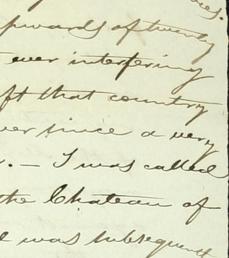 pwards of twenty
ever interfering
ft that country
ver since a very
. — I was called
the Chateau of
e was subsequent